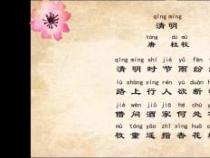 qīng míng
清明
táng dù mù
唐 杜牧
qīng míng shí jié yǔ fēn
清明时节雨纷
lù shàng xíng rén yù duàn
路上行人欲断
jiè wèn jiǔ jiā hé chù
借问酒家何处
mù tóng yáo zhǐ xìng huā
牧童遥指杏花